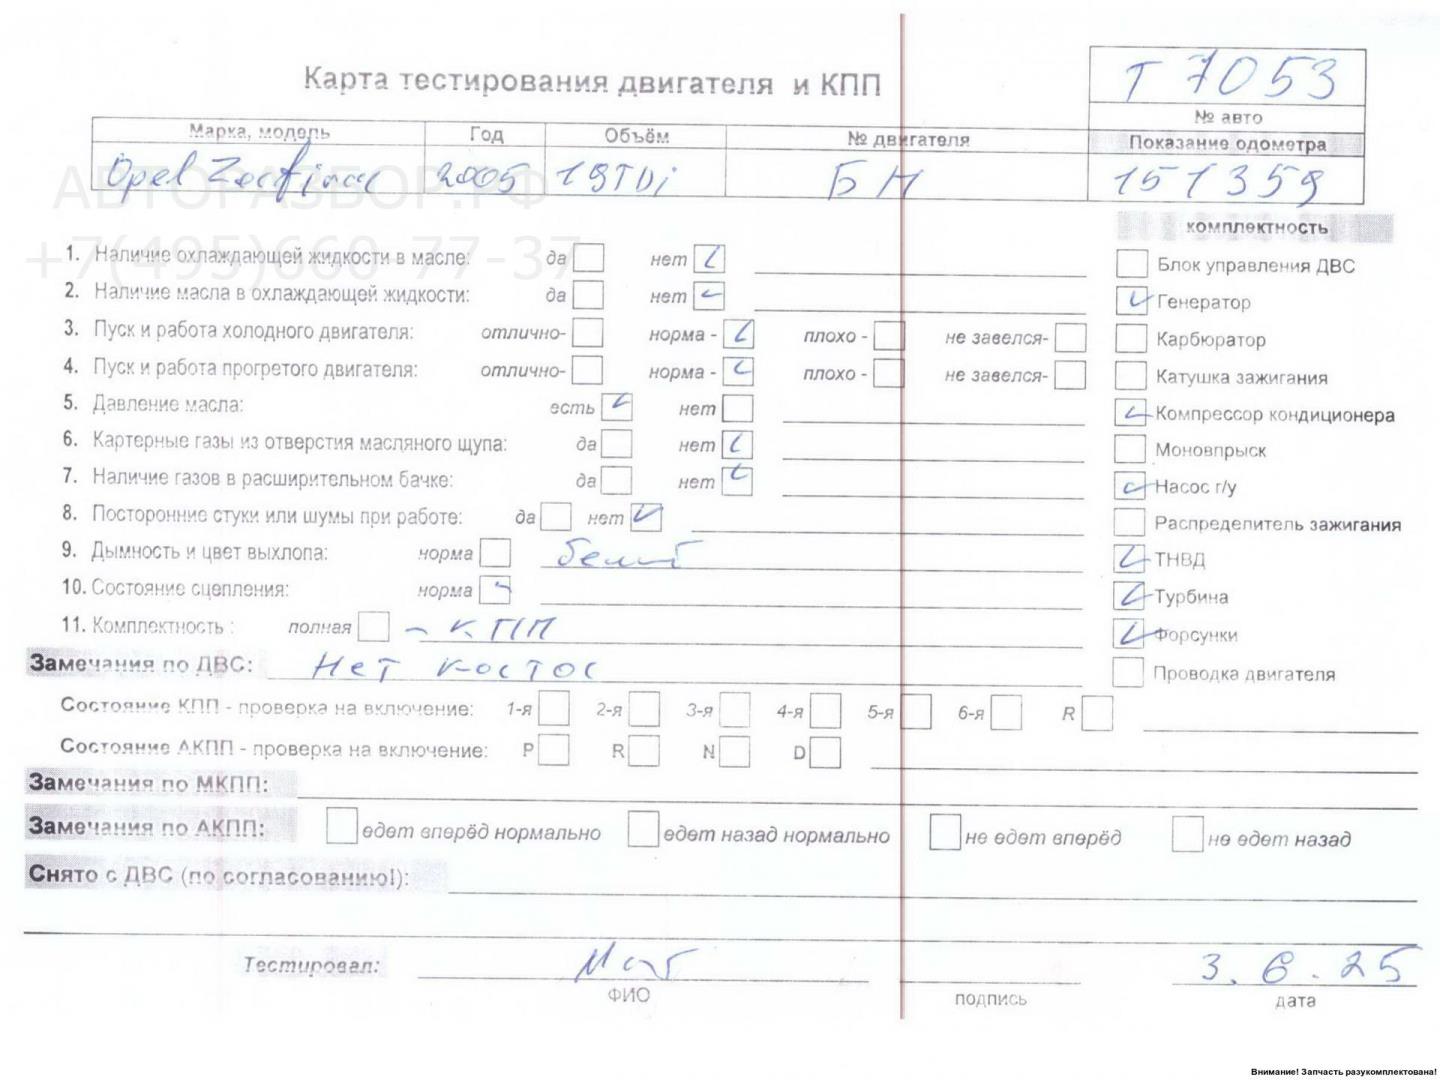 Карта тестирования двигателя и КПП
Т 7053
№ авто
Марка, модель Год Объём № двигателя Показание одометра
Opel Zafira 2005 1.9TDi БН 151359
АВТОРАЗБОР.РФ
+7(495)660-77-37
комплектность
1. Наличие охлаждающей жидкости в масле: да нет
Блок управления ДВС
2. Наличие масла в охлаждающей жидкости: да нет
Генератор
3. Пуск и работа холодного двигателя: отлично- норма - плохо - не завелся-
Карбюратор
4. Пуск и работа прогретого двигателя: отлично- норма - плохо - не завелся-
Катушка зажигания
5. Давление масла: есть нет
Компрессор кондиционера
6. Картерные газы из отверстия масляного щупа: да нет
Моновпрыск
7. Наличие газов в расширительном бачке: да нет
Насос г/у
8. Посторонние стуки или шумы при работе: да нет
Распределитель зажигания
9. Дымность и цвет выхлопа: норма
ТНВД
10. Состояние сцепления: норма
Турбина
11. Комплектность : полная - КПП
Форсунки
Замечания по ДВС: Нет костос
Проводка двигателя
Состояние КПП - проверка на включение: 1-я 2-я 3-я 4-я 5-я 6-я R
Состояние АКПП - проверка на включение: P R N D
Замечания по МКПП:
Замечания по АКПП: едет вперёд нормально едет назад нормально не едет вперёд не едет назад
Снято с ДВС (по согласованию!):
Тестировал: 3.6.25
ФИО подпись дата
Внимание! Запчасть разукомплектована!